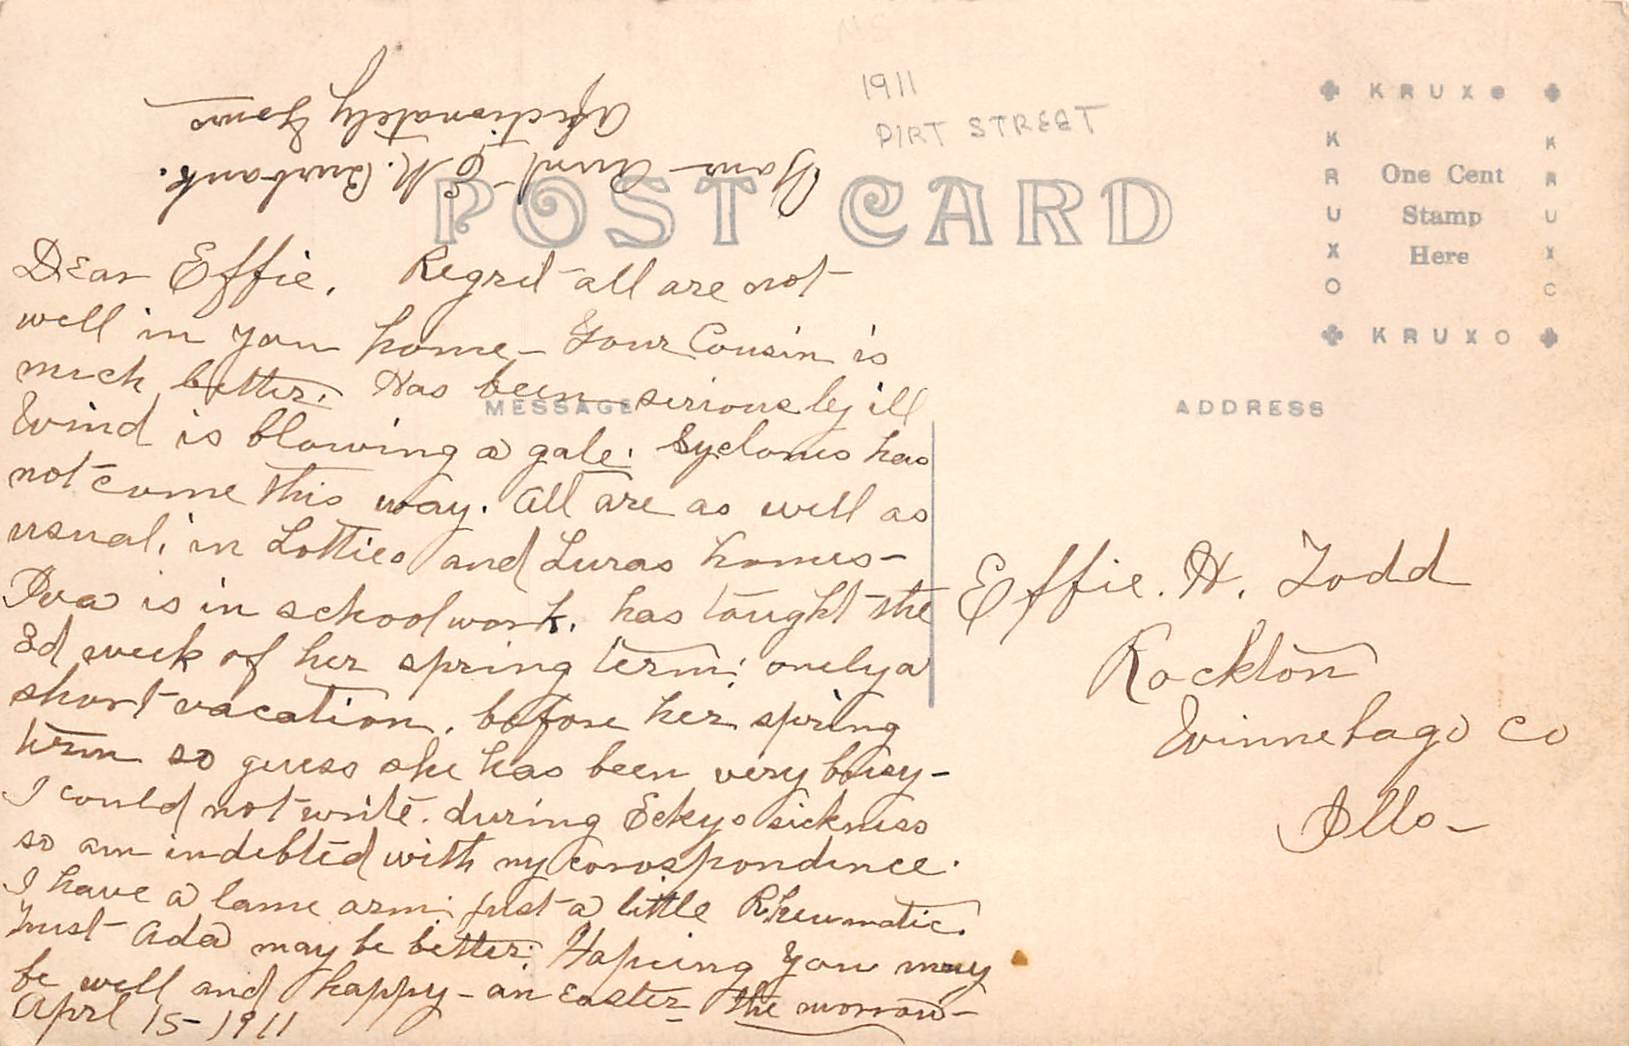 1911
DIRT STREET
POST CARD
KRUXO
KRUXO
KRUXO
KRUXO
One Cent
Stamp
Here
MESSAGE
ADDRESS
Dear Effie. Regret all are not
well in you home - Your Cousin is
much better. Has been seriously ill
Wind is blowing a gale. Syclones has
not come this way. All are as well as
usual, in Lotties and Luras homes -
Iva is in school work. has taught the
3d week of her spring term; onely a
short vacation. before her spring
term so guess she has been very busy -
I could not write. during Eckys sickness
so am indebted with my corospondence.
I have a lame arm; just a little Rheumatic.
Trust Ada may be better: Hopeing You may
be well and happy - an Easter the morrow -
Aprl 15 - 1911
Your Aunt E M. Burbank.
Afectionately Yours
Effie. H. Todd
Rockton
Winnebago Co
Ills -